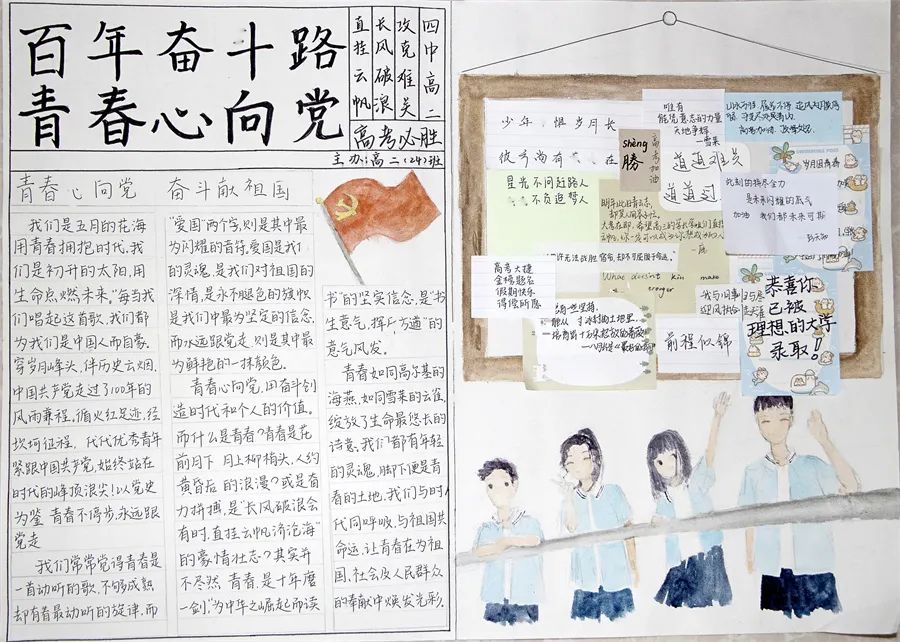 百年奋斗路
青春心向党
直挂云帆
长风破浪
攻克难关
四中高二
高考必胜
主办:高二(24)班
青春心向党 奋斗献祖国
我们是五月的花海
用青春拥抱时代,我
们是初升的太阳,用
生命点燃未来。"每当我
们唱起这首歌,我们都
为我们是中国人而自豪。
穿岁月峰头,伴历史云烟,
中国共产党走过了100年的
风雨兼程,循火红足迹,经
坎坷征程,代代优秀青年
紧跟中国共产党,始终站在
时代的峰顶浪尖!以党史
为鉴 青春不停步,永远跟
党走
我们常常觉得青春是
一首动听的歌,不够成熟
却有着最动听的旋律,而
"爱国"两个字,则是其中最
为闪耀的音符。爱国是我们
的灵魂,是我们对祖国的
深情,是永不褪色的旗帜
是我们中最为坚定的信念,
而永远跟党走,则是其中最
为鲜艳的一抹颜色。
青春心向党,用奋斗创
造时代和个人的价值。
而什么是青春?青春是花
前月下 月上柳梢头,人约
黄昏后的浪漫?或是奋
力拼搏,是"长风破浪会
有时,直挂云帆济沧海"
的豪情壮志?其实并
不尽然,青春,是十年磨
一剑,"为中华之崛起而读
书"的坚实信念,是"书
生意气,挥斥方遒"的
意气风发。
青春如同高尔基的
海燕,如同雪莱的云雀,
绽放了生命最悠长的
诗意,我们都有年轻
的灵魂,脚下便是青
春的土地,我们与时
代同呼吸,与祖国共
命运,让青春在为祖
国、社会及人民群众
的奉献中焕发光彩。
少年,惧岁月长
彼方尚有 在
星光不问赶路人
不负追梦人
shèng
勝
高考加油
唯有
能凭意志的力量
天地争辉
道道难关
道道过
岁月因青春
是未来闪耀的底气
加油 我们都未来可期
高考大捷
金榜题名
假期快乐
得偿所愿
What doesn't kill make
stronger
前程似锦
恭喜你
已被
理想的大学
录取!